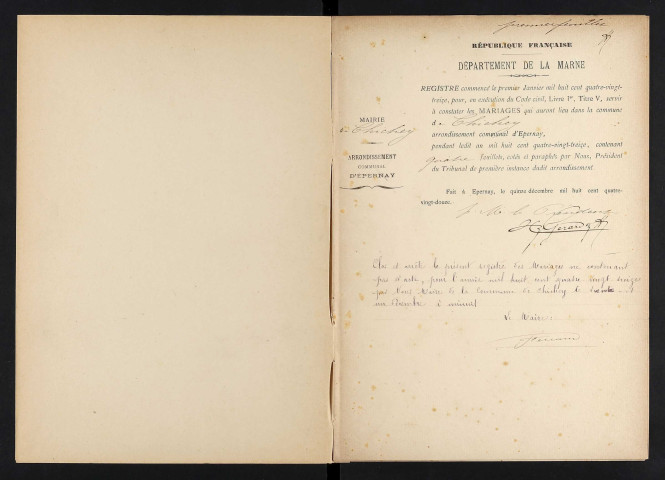 premier feuillet
RÉPUBLIQUE FRANÇAISE
DÉPARTEMENT DE LA MARNE
REGISTRE commencé le premier Janvier mil huit cent quatre-vingt-
treize, pour, en exécution du Code civil, Livre Iᵉʳ, Titre V, servir
à constater les MARIAGES qui auront lieu dans la commune
de Thichey
arrondissement communal d'Epernay,
pendant ledit an mil huit cent quatre-vingt-treize, contenant
quatre feuillets, cotés et paraphés par Nous, Président
du Tribunal de première instance dudit arrondissement.
MAIRIE
de Chichey
ARRONDISSEMENT
COMMUNAL
D'EPERNAY
Fait à Epernay, le quinze décembre mil huit cent quatre-
vingt-douze.
P. Mr le Président
Clos et arrêté le présent registre des Mariages ne contenant
pas d'acte, pour l'année mil huit cent quatre-vingt treize
par Nous Maire de la Commune de Chichey le trente et
un Décembre à minuit
Le Maire